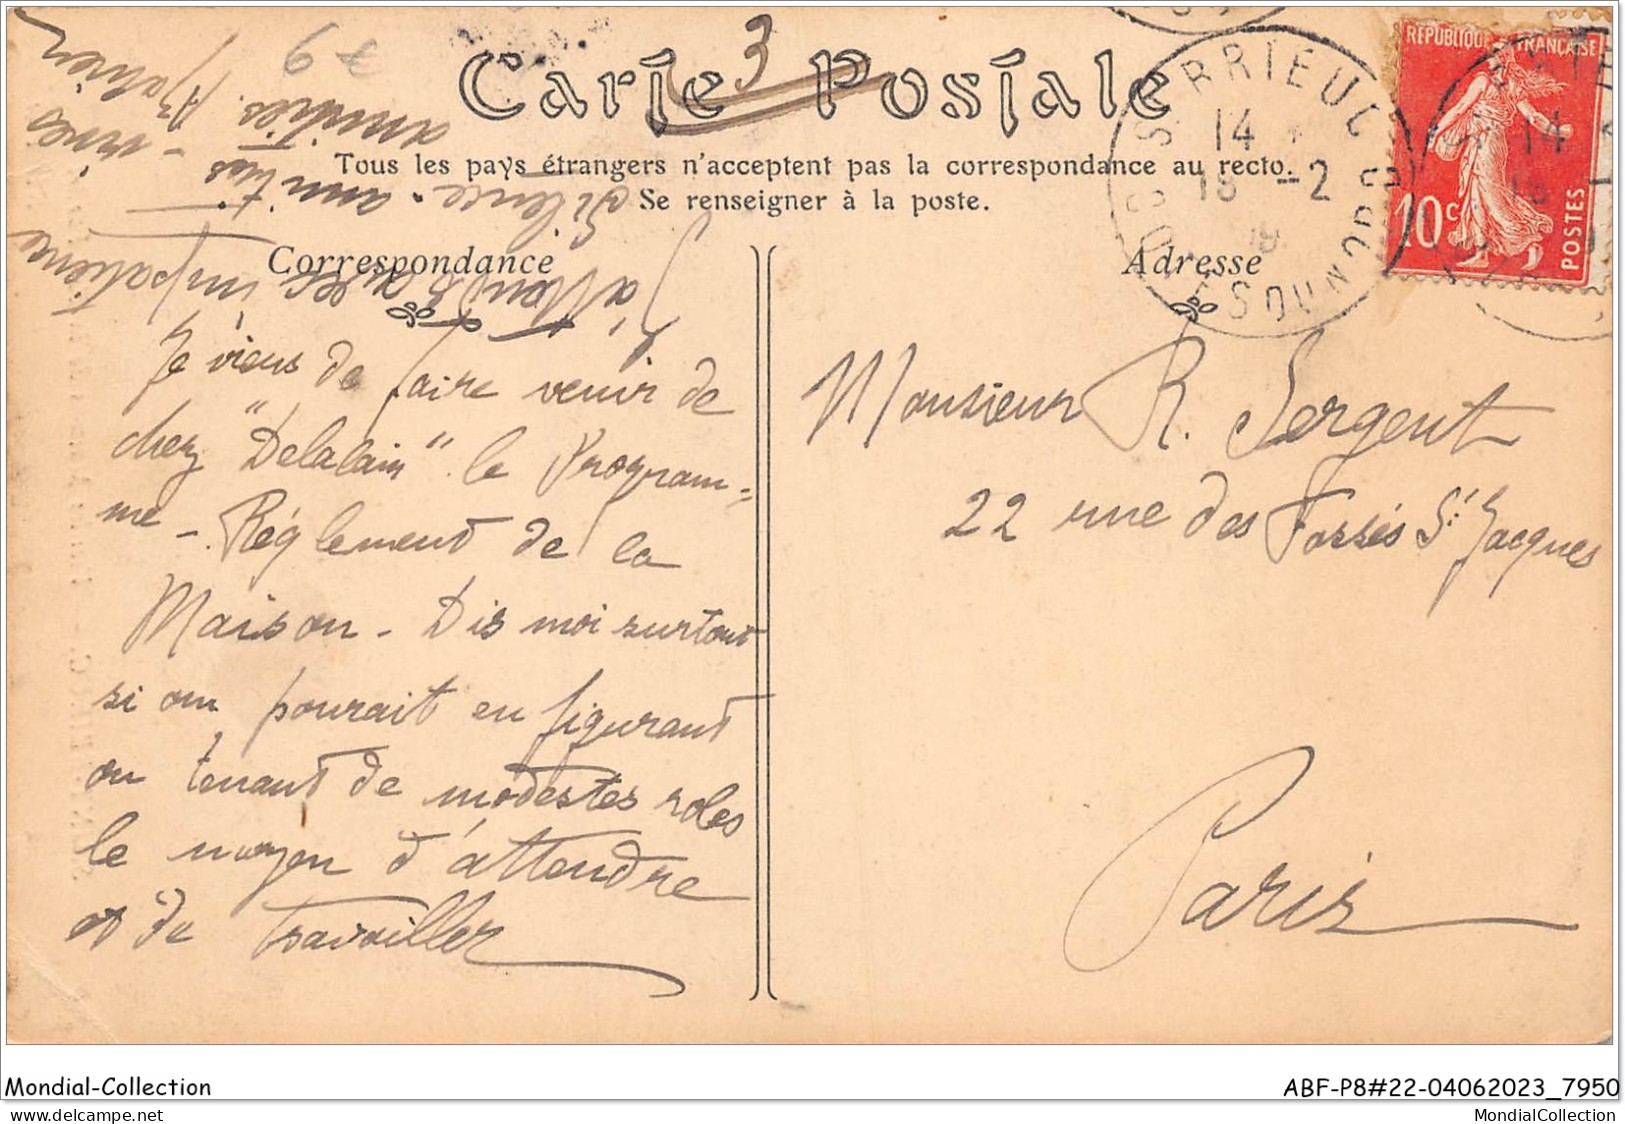 3
79
Carte Postale
Tous les pays étrangers n'acceptent pas la correspondance au recto.
Se renseigner à la poste.
Correspondance
Adresse
REPUBLIQUE FRANÇAISE
10c
POSTES
14
18 -2
14
18
Je viens de faire venir de
chez "Delalain" le Program-
me - Règlement de la
Maison - Dis moi surtout
si on pourait en figurant
ou tenant de modestes roles
le moyen d'attendre
et de travailler
J'attends avec impatience
Silence - amitiés
- vives
amitiés.
Monsieur R. Sergent
22 rue des Fossés St Jacques
Paris
Mondial-Collection
ABF-P8#22-04062023_7950
MondialCollection